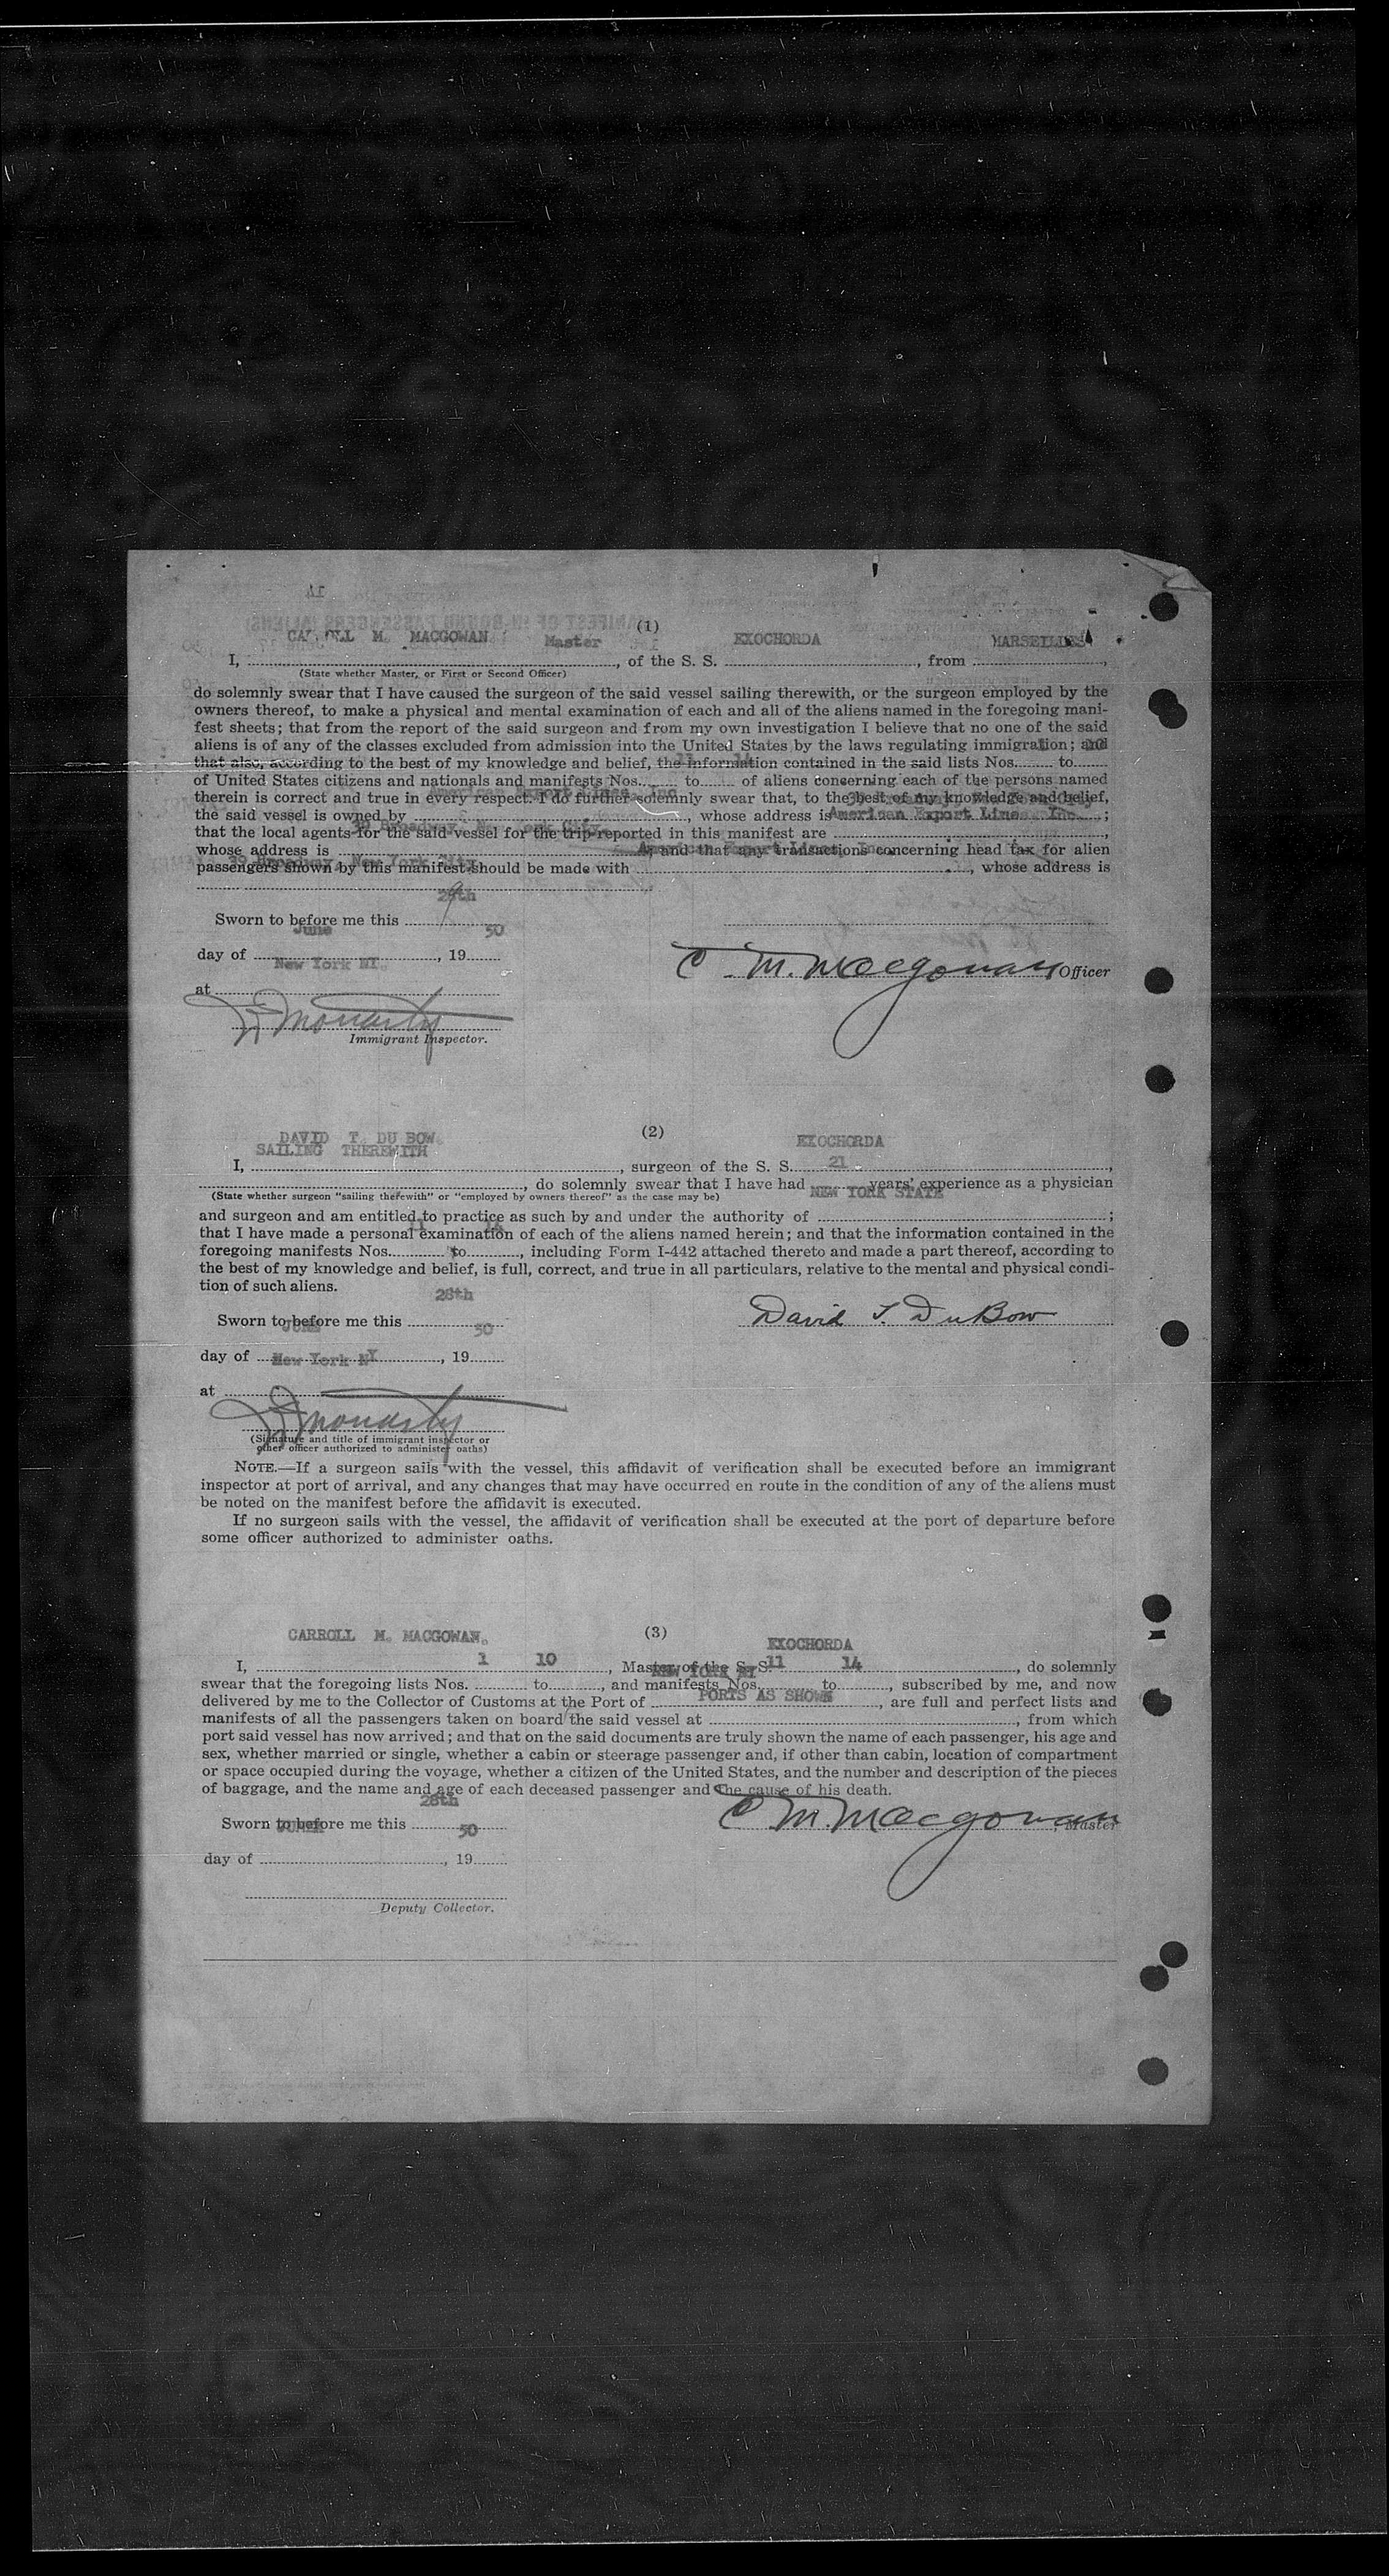 (1)
CARROLL M. MACGOWAN Master EXOCHORDA MARSEILLES
I, ........, of the S. S. ........, from ........,
(State whether Master, or First or Second Officer)
do solemnly swear that I have caused the surgeon of the said vessel sailing therewith, or the surgeon employed by the
owners thereof, to make a physical and mental examination of each and all of the aliens named in the foregoing mani-
fest sheets; that from the report of the said surgeon and from my own investigation I believe that no one of the said
aliens is of any of the classes excluded from admission into the United States by the laws regulating immigration; and
that also, according to the best of my knowledge and belief, the information contained in the said lists Nos........ to........
of United States citizens and nationals and manifests Nos........ to........ of aliens concerning each of the persons named
American Export Lines, Inc
therein is correct and true in every respect. I do further solemnly swear that, to the best of my knowledge and belief,
the said vessel is owned by ........, whose address is American Export Lines Inc. ;
39 Broadway, New York City
that the local agents for the said vessel for the trip reported in this manifest are ........,
whose address is ........, and that any transactions concerning head tax for alien
39 Broadway, New York City American Export Lines, Inc
passengers shown by this manifest should be made with ........, whose address is
........
28th
Sworn to before me this ........
June 50
day of ........, 19....
New York NY.
C. M. Macgowan Officer
at ........
Immigrant Inspector.
(2)
DAVID T. DU BOW. EXOCHORDA
SAILING THEREWITH
I, ........, surgeon of the S. S. ........,
21
........, do solemnly swear that I have had ........ years' experience as a physician
NEW YORK STATE
(State whether surgeon "sailing therewith" or "employed by owners thereof" as the case may be)
and surgeon and am entitled to practice as such by and under the authority of ........;
11 14
that I have made a personal examination of each of the aliens named herein; and that the information contained in the
foregoing manifests Nos........ to........, including Form I-442 attached thereto and made a part thereof, according to
the best of my knowledge and belief, is full, correct, and true in all particulars, relative to the mental and physical condi-
tion of such aliens.
28th
Sworn to before me this ........ David T. DuBow
JUNE 50
day of ........, 19....
New York NY
at ........
(Signature and title of immigrant inspector or
other officer authorized to administer oaths)
NOTE.—If a surgeon sails with the vessel, this affidavit of verification shall be executed before an immigrant
inspector at port of arrival, and any changes that may have occurred en route in the condition of any of the aliens must
be noted on the manifest before the affidavit is executed.
If no surgeon sails with the vessel, the affidavit of verification shall be executed at the port of departure before
some officer authorized to administer oaths.
(3)
CARROLL M. MACGOWAN. EXOCHORDA
1 10 11 14
I, ........, Master of the S. S. ........, do solemnly
NEW YORK NY
swear that the foregoing lists Nos. ........ to........, and manifests Nos. ........ to........, subscribed by me, and now
PORTS AS SHOWN
delivered by me to the Collector of Customs at the Port of ........, are full and perfect lists and
manifests of all the passengers taken on board the said vessel at ........, from which
port said vessel has now arrived; and that on the said documents are truly shown the name of each passenger, his age and
sex, whether married or single, whether a cabin or steerage passenger and, if other than cabin, location of compartment
or space occupied during the voyage, whether a citizen of the United States, and the number and description of the pieces
of baggage, and the name and age of each deceased passenger and the cause of his death.
28th
Sworn to before me this ........ C. M. Macgowan, Master
JUNE 50
day of ........, 19....
Deputy Collector.